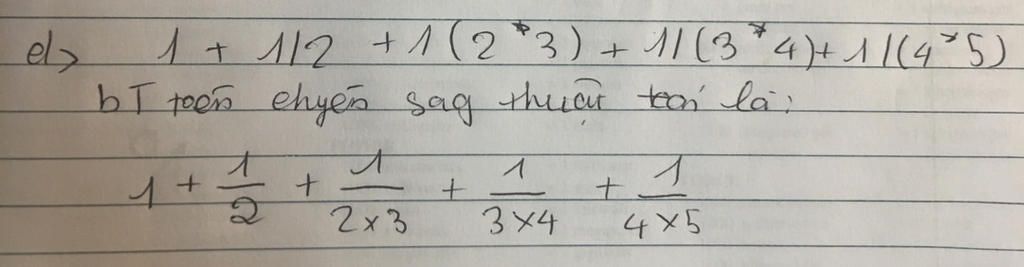 c> 1 + 1/2 + 1 (2 * 3) + 1/(3 * 4) + 1/(4 * 5)
bT toán chyển sag thuật toán là:
1 + 1/2 + 1/(2 x 3) + 1/(3 x 4) + 1/(4 x 5)